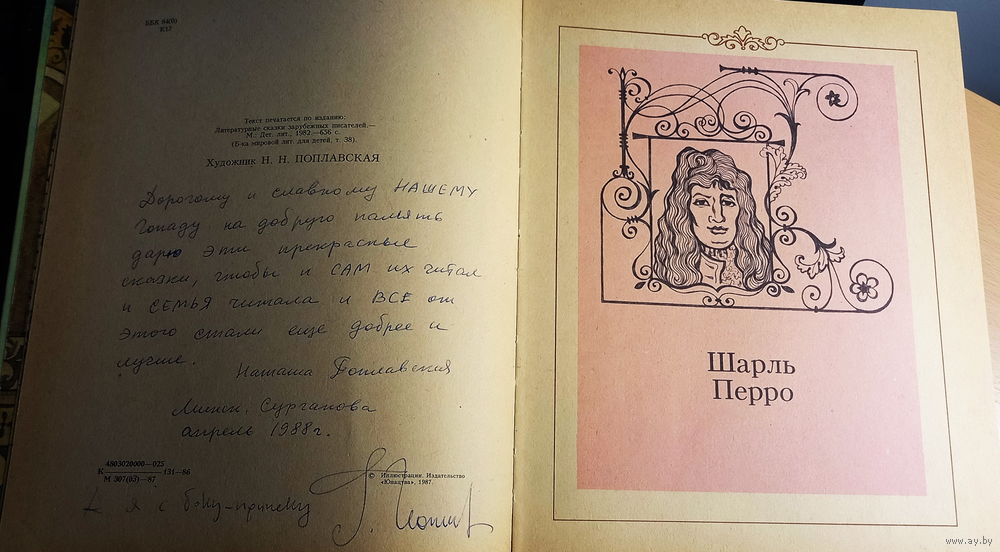 ББК 84(0)
К12
Текст печатается по изданию:
Литературные сказки зарубежных писателей.—
М.: Дет. лит., 1982.—656 с.
(Б-ка мировой лит. для детей, т. 38).
Художник Н. Н. ПОПЛАВСКАЯ
Дорогому и славному НАШЕМУ
на добрую память
дарю эти прекрасные
сказки, чтобы и САМ их читал
и СЕМЬЯ читала и ВСЕ от
этого стали еще добрее и
лучше.
Наташа Поплавская
Минск, Сурганова
апрель 1988 г.
4803020000—025
К 131—86
М 307(03)—87
© Иллюстрации. Издательство
«Юнацтва», 1987.
я с боку-припёку
Шарль
Перро
www.ay.by